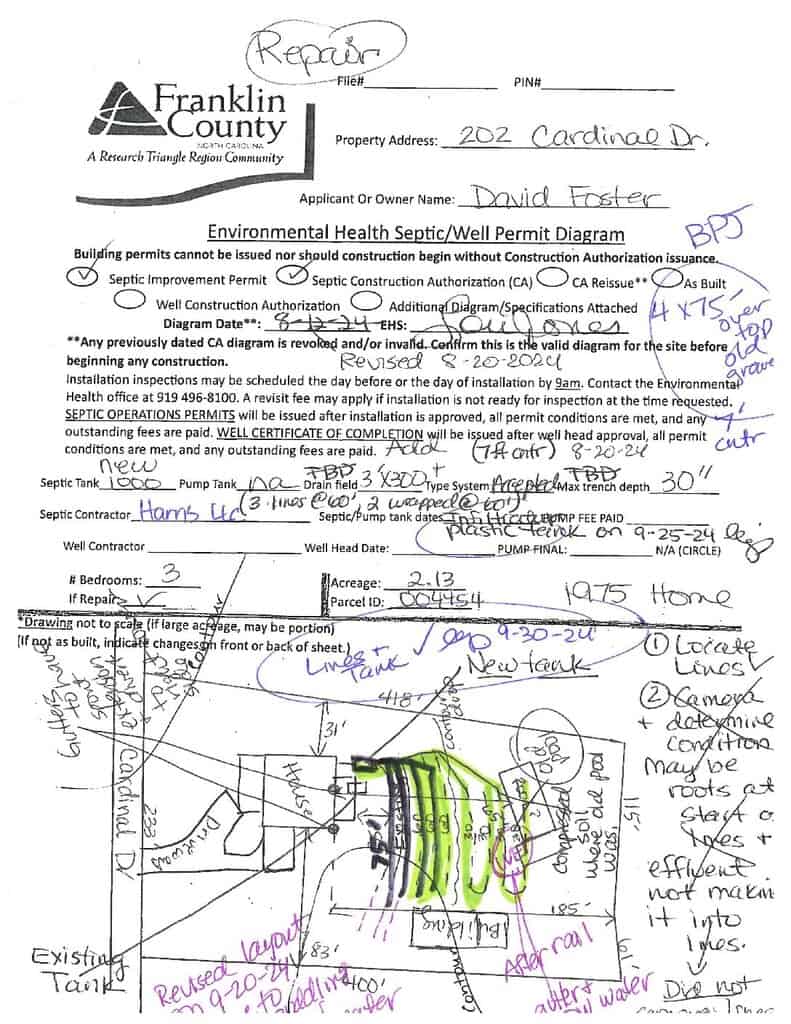 Repair
File#
PIN#
Franklin
County
NORTH CAROLINA
A Research Triangle Region Community
Property Address: 202 Cardinal Dr.
Applicant Or Owner Name: David Foster
Environmental Health Septic/Well Permit Diagram
BPJ
Building permits cannot be issued nor should construction begin without Construction Authorization issuance.
Septic Improvement Permit
Septic Construction Authorization (CA)
CA Reissue**
As Built
Well Construction Authorization
Additional Diagram/Specifications Attached
4 x 75'
over
top
old
Diagram Date**: 8-12-24 EHS:
**Any previously dated CA diagram is revoked and/or invalid. Confirm this is the valid diagram for the site before
beginning any construction.
Revised 8-20-2024
Installation inspections may be scheduled the day before or the day of installation by 9am. Contact the Environmental
Health office at 919 496-8100. A revisit fee may apply if installation is not ready for inspection at the time requested.
SEPTIC OPERATIONS PERMITS will be issued after installation is approved, all permit conditions are met, and any
outstanding fees are paid. WELL CERTIFICATE OF COMPLETION will be issued after well head approval, all permit
conditions are met, and any outstanding fees are paid.
cntr
Add (7ft cntr) 8-20-24
new
Septic Tank 1000 Pump Tank na Drain field TBD 3'x300' + Type System Accepted Max trench depth TBD 30"
(3 lines @60', 2 wrapped @60')
Septic Contractor Harris LLC Septic/Pump tank dates PUMP FEE PAID
plastic tank on 9-25-24
Well Contractor Well Head Date: PUMP FINAL: N/A (CIRCLE)
# Bedrooms: 3
Acreage: 2.13
If Repair:
Parcel ID: 004454
1975 Home
*Drawing not to scale (if large acreage, may be portion)
(If not as built, indicate changes on front or back of sheet.)
Lines +
Tank
9-30-24
New tank
① Locate
Lines
② Camera
+ determine
condition
may be
roots at
start o
lines +
effluent
not makin
it into
lines.
Did not
gutters
to have
spout
418'
31'
contour
old
pool
House
Cardinal Dr
233'
Driveway
75'
Existing
60
30
compressed
soil
where old pool
was.
115'
185'
Building
Existing
Tank
83'
400'
Contour
Revised layout
on 9-20-24
to
After rail
water